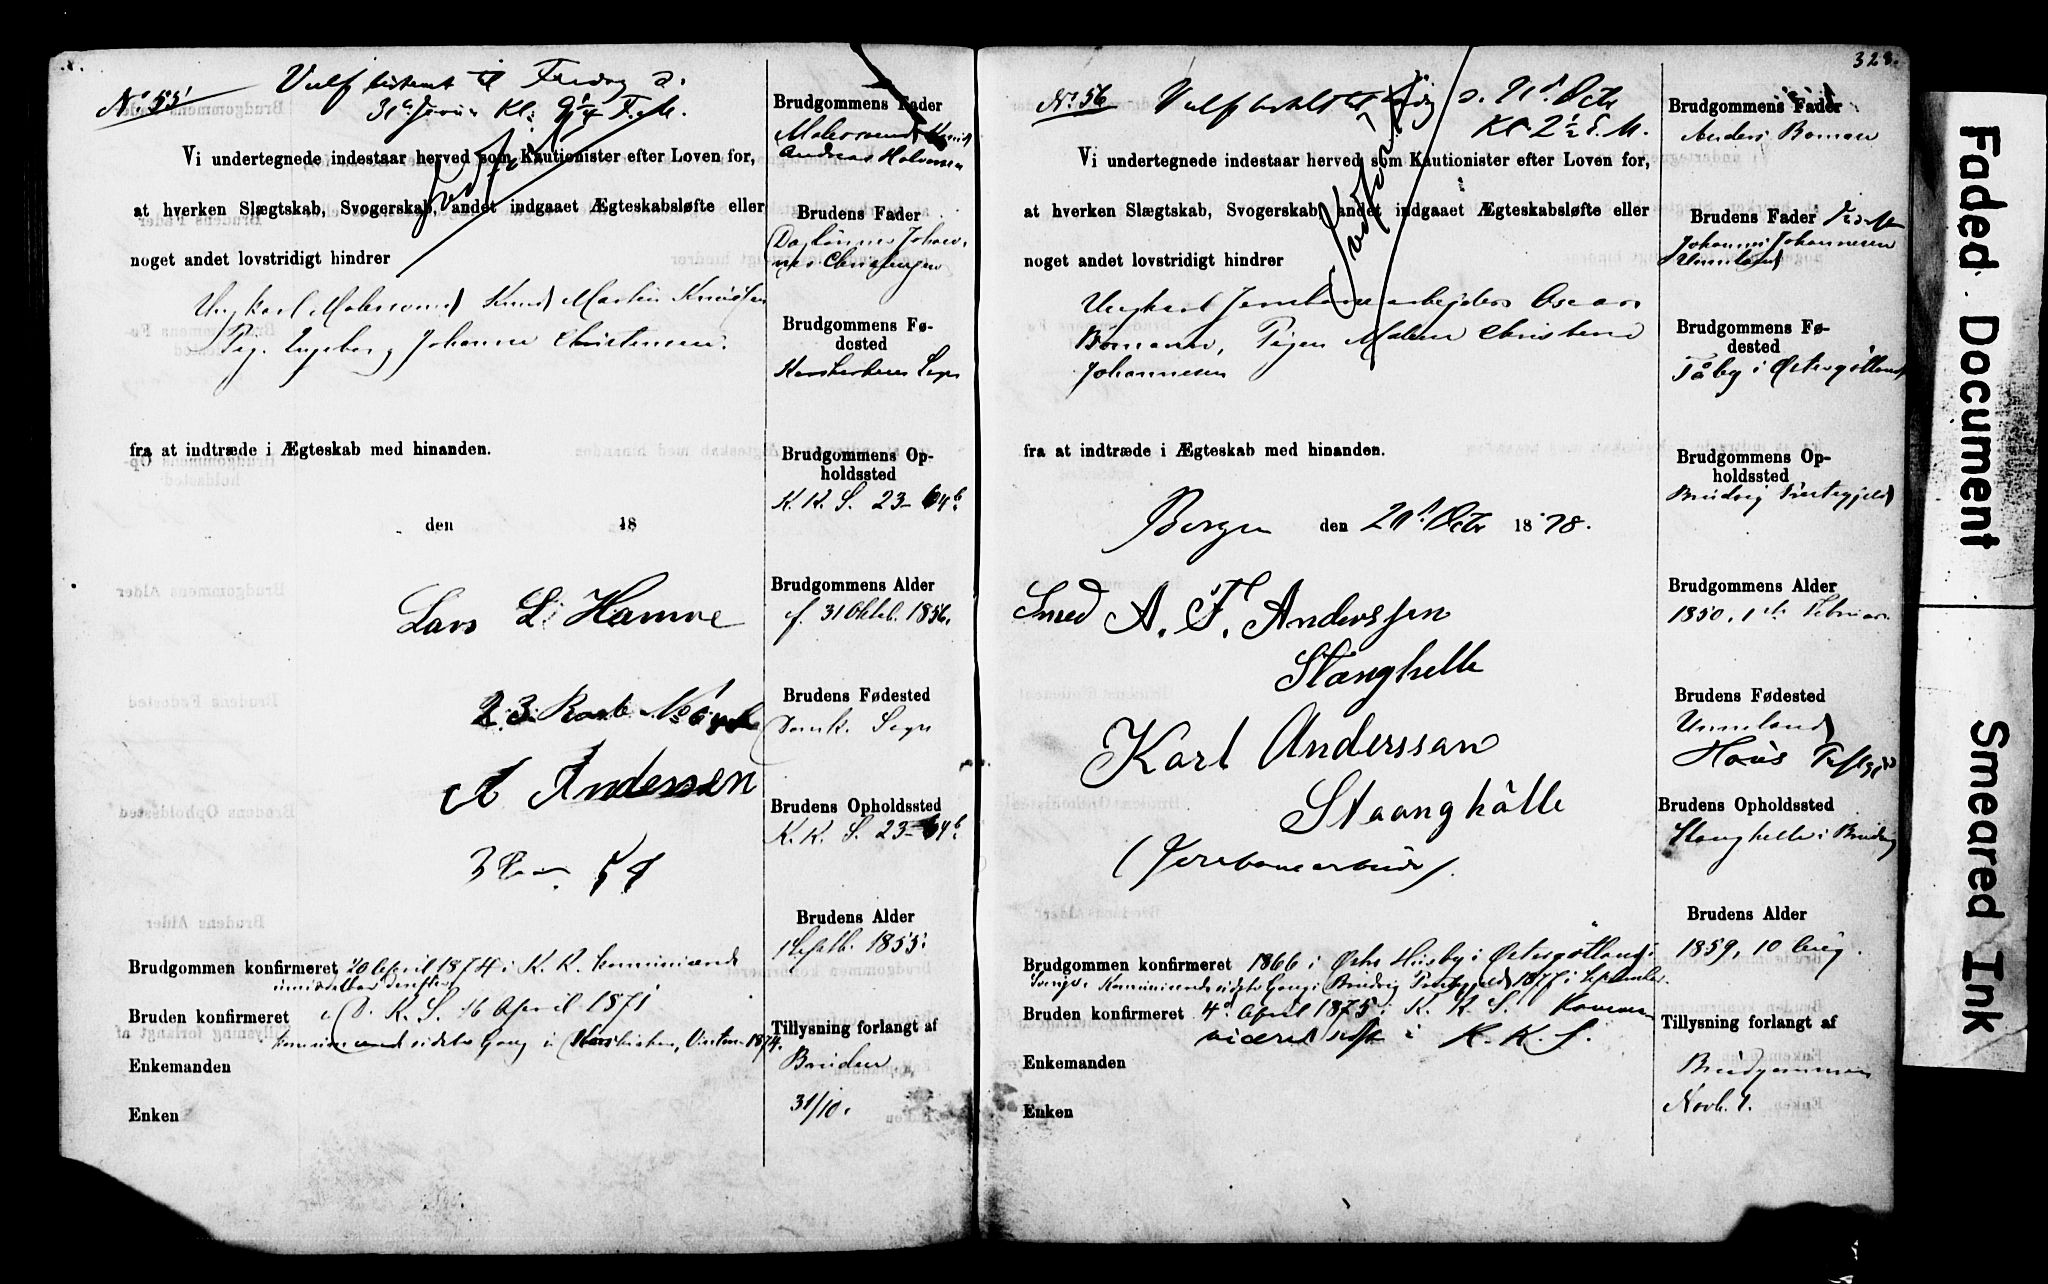 No 55
Vielse bestemt til Fredag d.
31te Kl. 9 1/4 F. M.
Vi undertegnede indestaar herved som Kautionister efter Loven for,
at hverken Slægtskab, Svogerskab, andet indgaaet Ægteskabsløfte eller
noget andet lovstridigt hindrer
Ungkarl Malersvend Knud Martin
Pig. Ingeborg Johanne Christensen.
fra at indtræde i Ægteskab med hinanden.
den 18
Lars L. Hamre
23 Rode No
A Andersen
3
Brudgommen konfirmeret 20 April 1874 i K. K.
umiddelbar derefter
Bruden konfirmeret i D. K. S. 16 April 1871
sidste Gang i Korskirken, 1874.
Enkemanden
Enken
Brudgommens Fader
Malersvend
Andreas
Brudens Fader
Johan-
nes
Brudgommens Fø-
dested
Korskirkens Sogn
Brudgommens Op-
holdssted
K. K. S. 23 - 64b
Brudgommens Alder
f. 31 Oktob. 1856.
Brudens Fødested
Domk. Sogn
Brudens Opholdssted
K. K. S. 23 - 64b
Brudens Alder
1 Septb. 1855.
Tillysning forlangt af
Bruden
31/10.
323.
No 56
d. Octr
Kl 2 1/2 E. M.
Vi undertegnede indestaar herved som Kautionister efter Loven for,
at hverken Slægtskab, Svogerskab, andet indgaaet Ægteskabsløfte eller
noget andet lovstridigt hindrer
Ungkarl Jernbanearbejder Oscar
Boman, Pigen Malene Christine
Johannesen
fra at indtræde i Ægteskab med hinanden.
Bergen den 21d Octr 1878.
Smed A. F. Anderssen
Stanghelle
Karl Anderssan
Staanghälle
(Jernbanearbeider).
Brudgommen konfirmeret 1866 i Østra Husby i Østergötland i
Sverige. sidste Gang i Bruvig Præstegjeld 1877 i September.
Bruden konfirmeret 4d April 1875 i K. K. S.
sidst i K. K. S.
Enkemanden
Enken
Brudgommens Fader
Anders Boman
Brudens Fader
Johannes Johannesen
Unneland
Brudgommens Fø-
dested
Tåby i Østergötland
Brudgommens Op-
holdssted
Bruvig Præstegjeld
Brudgommens Alder
1850, 1ste Februar.
Brudens Fødested
Unneland
Haus
Brudens Opholdssted
Stanghelle i Bruvig
Brudens Alder
1859, 10 Aug.
Tillysning forlangt af
Brudgommen
Novb. 1.
Faded Document
Smeared Ink